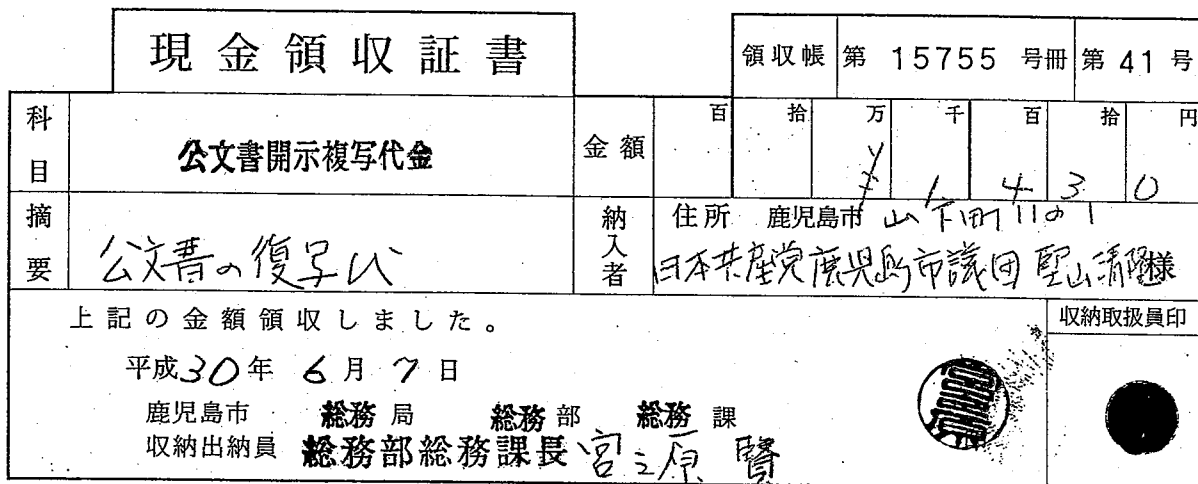 現金領収証書
領収帳 第 15755 号冊 第 41 号
科目 公文書開示複写代金
金額 百 拾 万 千 百 拾 円
¥ 1 4 3 0
摘要 公文書の復写代
納入者 住所 鹿児島市 山下町11の1
日本共産党鹿児島市議団 聖山清隆様
上記の金額領収しました。
収納取扱員印
平成30年 6月 7日
鹿児島市 総務局 総務部 総務課
収納出納員 総務部総務課長 宮之原 賢